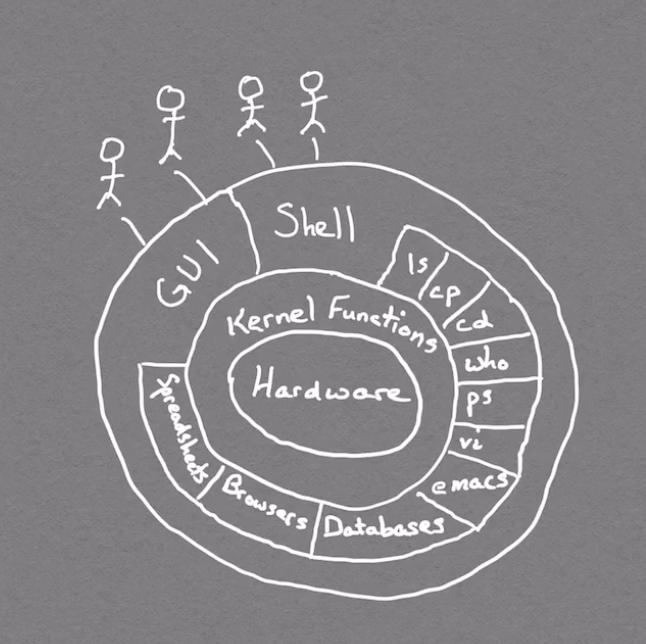 Shell
GUI
ls
cp
cd
who
ps
vi
emacs
Databases
Browsers
Spreadsheets
Kernel Functions
Hardware